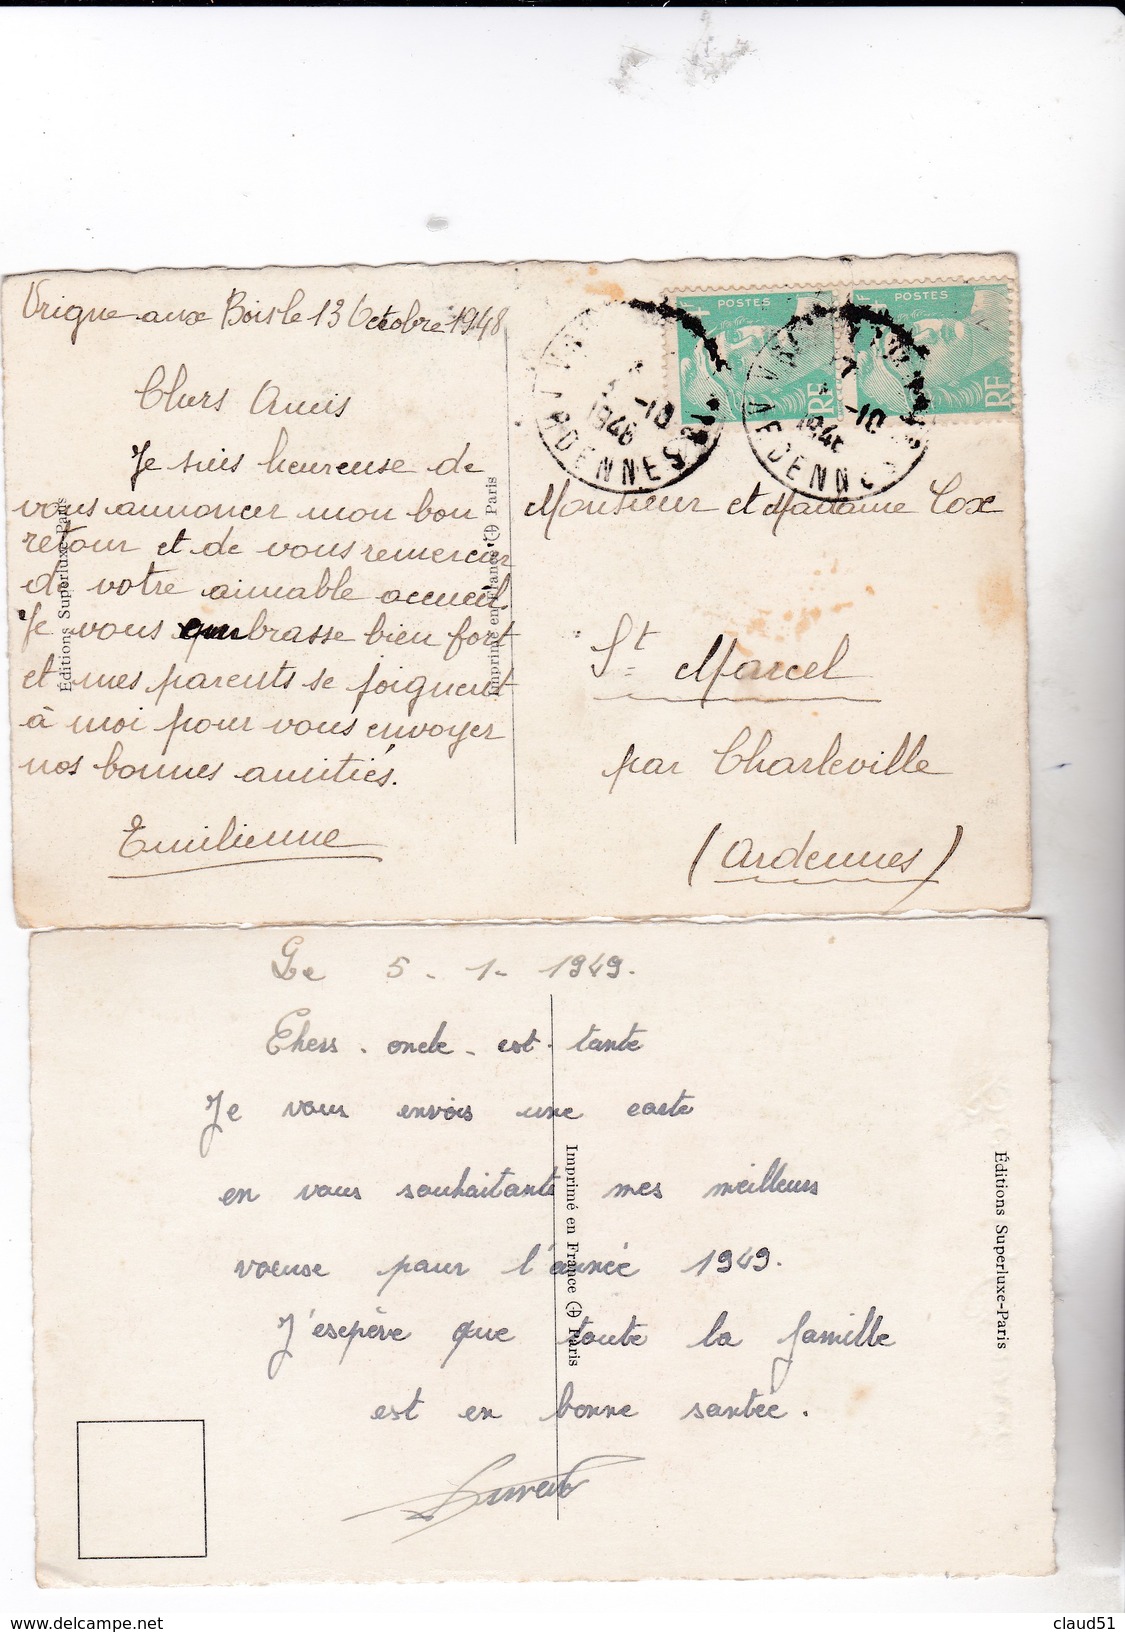 Vrigne aux Bois le 13 Octobre 1948
Chers Amis
Je suis heureuse de
vous annoncer mon bon
retour et de vous remercier
de votre aimable accueil.
Je vous embrasse bien fort
et mes parents se joignent
à moi pour vous envoyer
nos bonnes amitiés.
Emilienne
Éditions Superluxe-Paris
Imprimé en France Paris
POSTES
RF
POSTES
RF
-10
1948
ARDENNES
-10
ARDENNES
Monsieur et Madame Cox
St Marcel
par Charleville
(Ardennes)
Le 5-1-1949.
Chers. oncle. est. tante
Je vous envois une carte
en vous souhaitants mes meilleurs
voeuse pour l'année 1949.
J'esepère que toute la famille
est en bonne santée.
Imprimé en France Paris
Éditions Superluxe-Paris
claud51